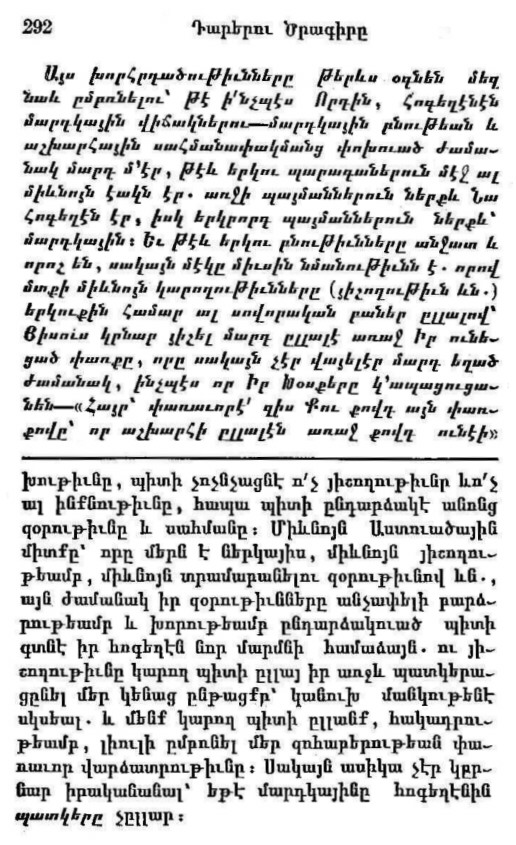 292 Դարերու Ծրագիրը
Այս խորհրդածութիւնները թերևս օգնեն մեզ
նաև ըմբռնելու՝ թէ ի՛նչպէս Որդին, Հոգեղէնէն
մարդկային վիճակներու—մարդկային բնութեան և
աշխարհային սահմանափակմանց փոխուած ժամա-
նակ մարդ մ'էր, թէև երկու պարագաներուն մէջ ալ
միևնոյն էակն էր. առջի պայմաններուն ներքև Նա
Հոգեղէն էր, իսկ երկրորդ պայմաններուն ներքև՝
մարդկային։ Եւ թէև երկու բնութիւնները անջատ և
որոշ են, սակայն մէկը միւսին նմանութիւնն է. որով
մտքի միևնոյն կարողութիւնները (յիշողութիւն ևն.)
երկուքին համար ալ սովորական բաներ ըլլալով՝
Յիսուս կրնար յիշել մարդ ըլլալէ առաջ Իր ունե-
ցած փառքը, որը սակայն չէր վայելէր մարդ եղած
ժամանակ, ինչպէս որ Իր Խօսքերը կ'ապացուցա-
նեն—«Հայր՝ փառաւորէ՛ զիս Քու քովդ այն փառ-
քովը՝ որ աշխարհի ըլլալէն առաջ քովդ ունէի»
խութիւնը, պիտի չոչնչացնէ ո՛չ յիշողութիւնր ևո՛չ
ալ ինքնութիւնը, հապա պիտի ընդարձակէ անոնց
զօրութիւնը և սահմանը։ Միևնոյն Աստուածային
միտքը՝ որը մերն է ներկայիս, միևնոյն յիշողու-
թեամբ, միևնոյն տրամաբանելու զօրութիւնով ևն.,
այն ժամանակ իր զօրութիւնները անչափելի բարձ-
րութեամբ և խորութեամբ ընդարձակուած պիտի
գտնէ իր հոգեղէն նոր մարմնի համաձայն. ու յի-
շողութիւնը կարող պիտի ըլլայ իր առջև պատկերա-
ցընել մեր կենաց ընթացքը՝ կանուխ մանկութենէ
սկսեալ. և մենք կարող պիտի ըլլանք, հակադրու-
թեամբ, լիուլի ըմբռնել մեր զոհաբերութեան փա-
ռաւոր վարձատրութիւնը։ Սակայն ասիկա չէր կըր-
նար իրականանալ՝ եթէ մարդկայինը հոգեղէնին
պատկերը չըլլար։